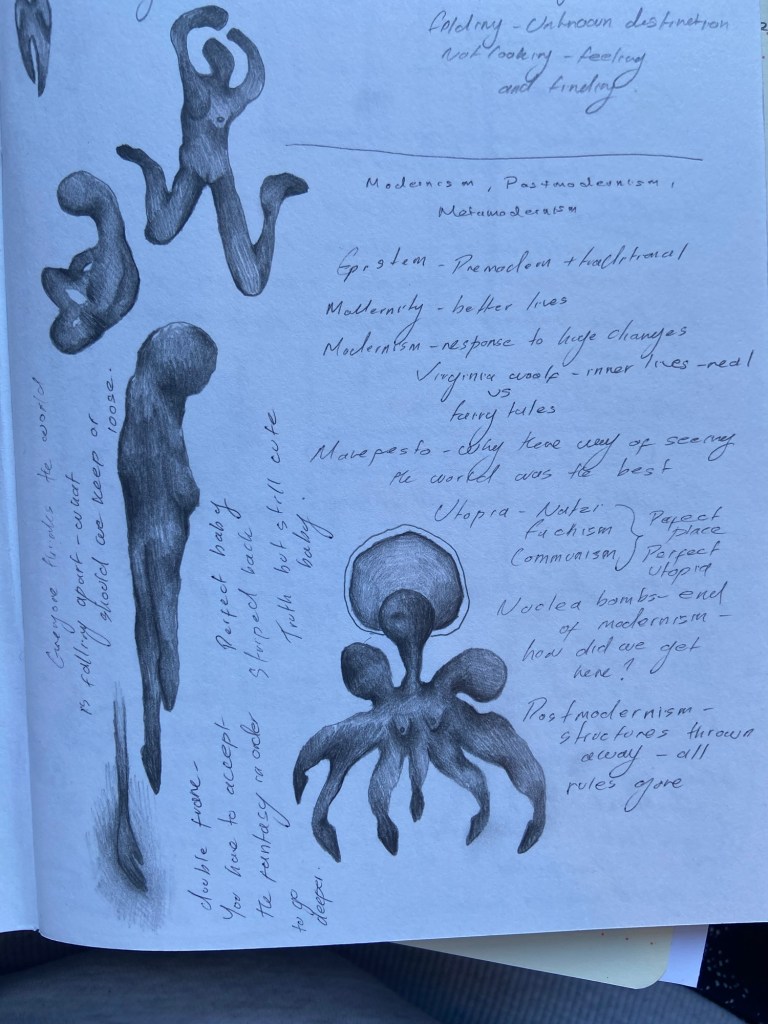 folding - Unknown distinction
Not looking - feeling
and finding.
Modernism, Postmodernism,
Metamodernism
Epistem - Premodern + traditional
Mordernity - better lives
Modernism - response to huge changes
Virginia woolf - inner lives - real
vs
fairy tales
Manefesto - why there way of seeing
the world was the best
Utopia - Natzi
fachism
Communism
Pefect
place
Perfect
utopia
Nuclea bombs - end
of modernism -
how did we get
here?
Postmodernism -
structures thrown
away - all
rules gone
Everyone thinks the world
is falling apart - what
should we keep or
loose.
Perfect baby
striped back
Truth but still cute
baby.
double frame -
You have to accept
the fantasy in order
to go
deeper.